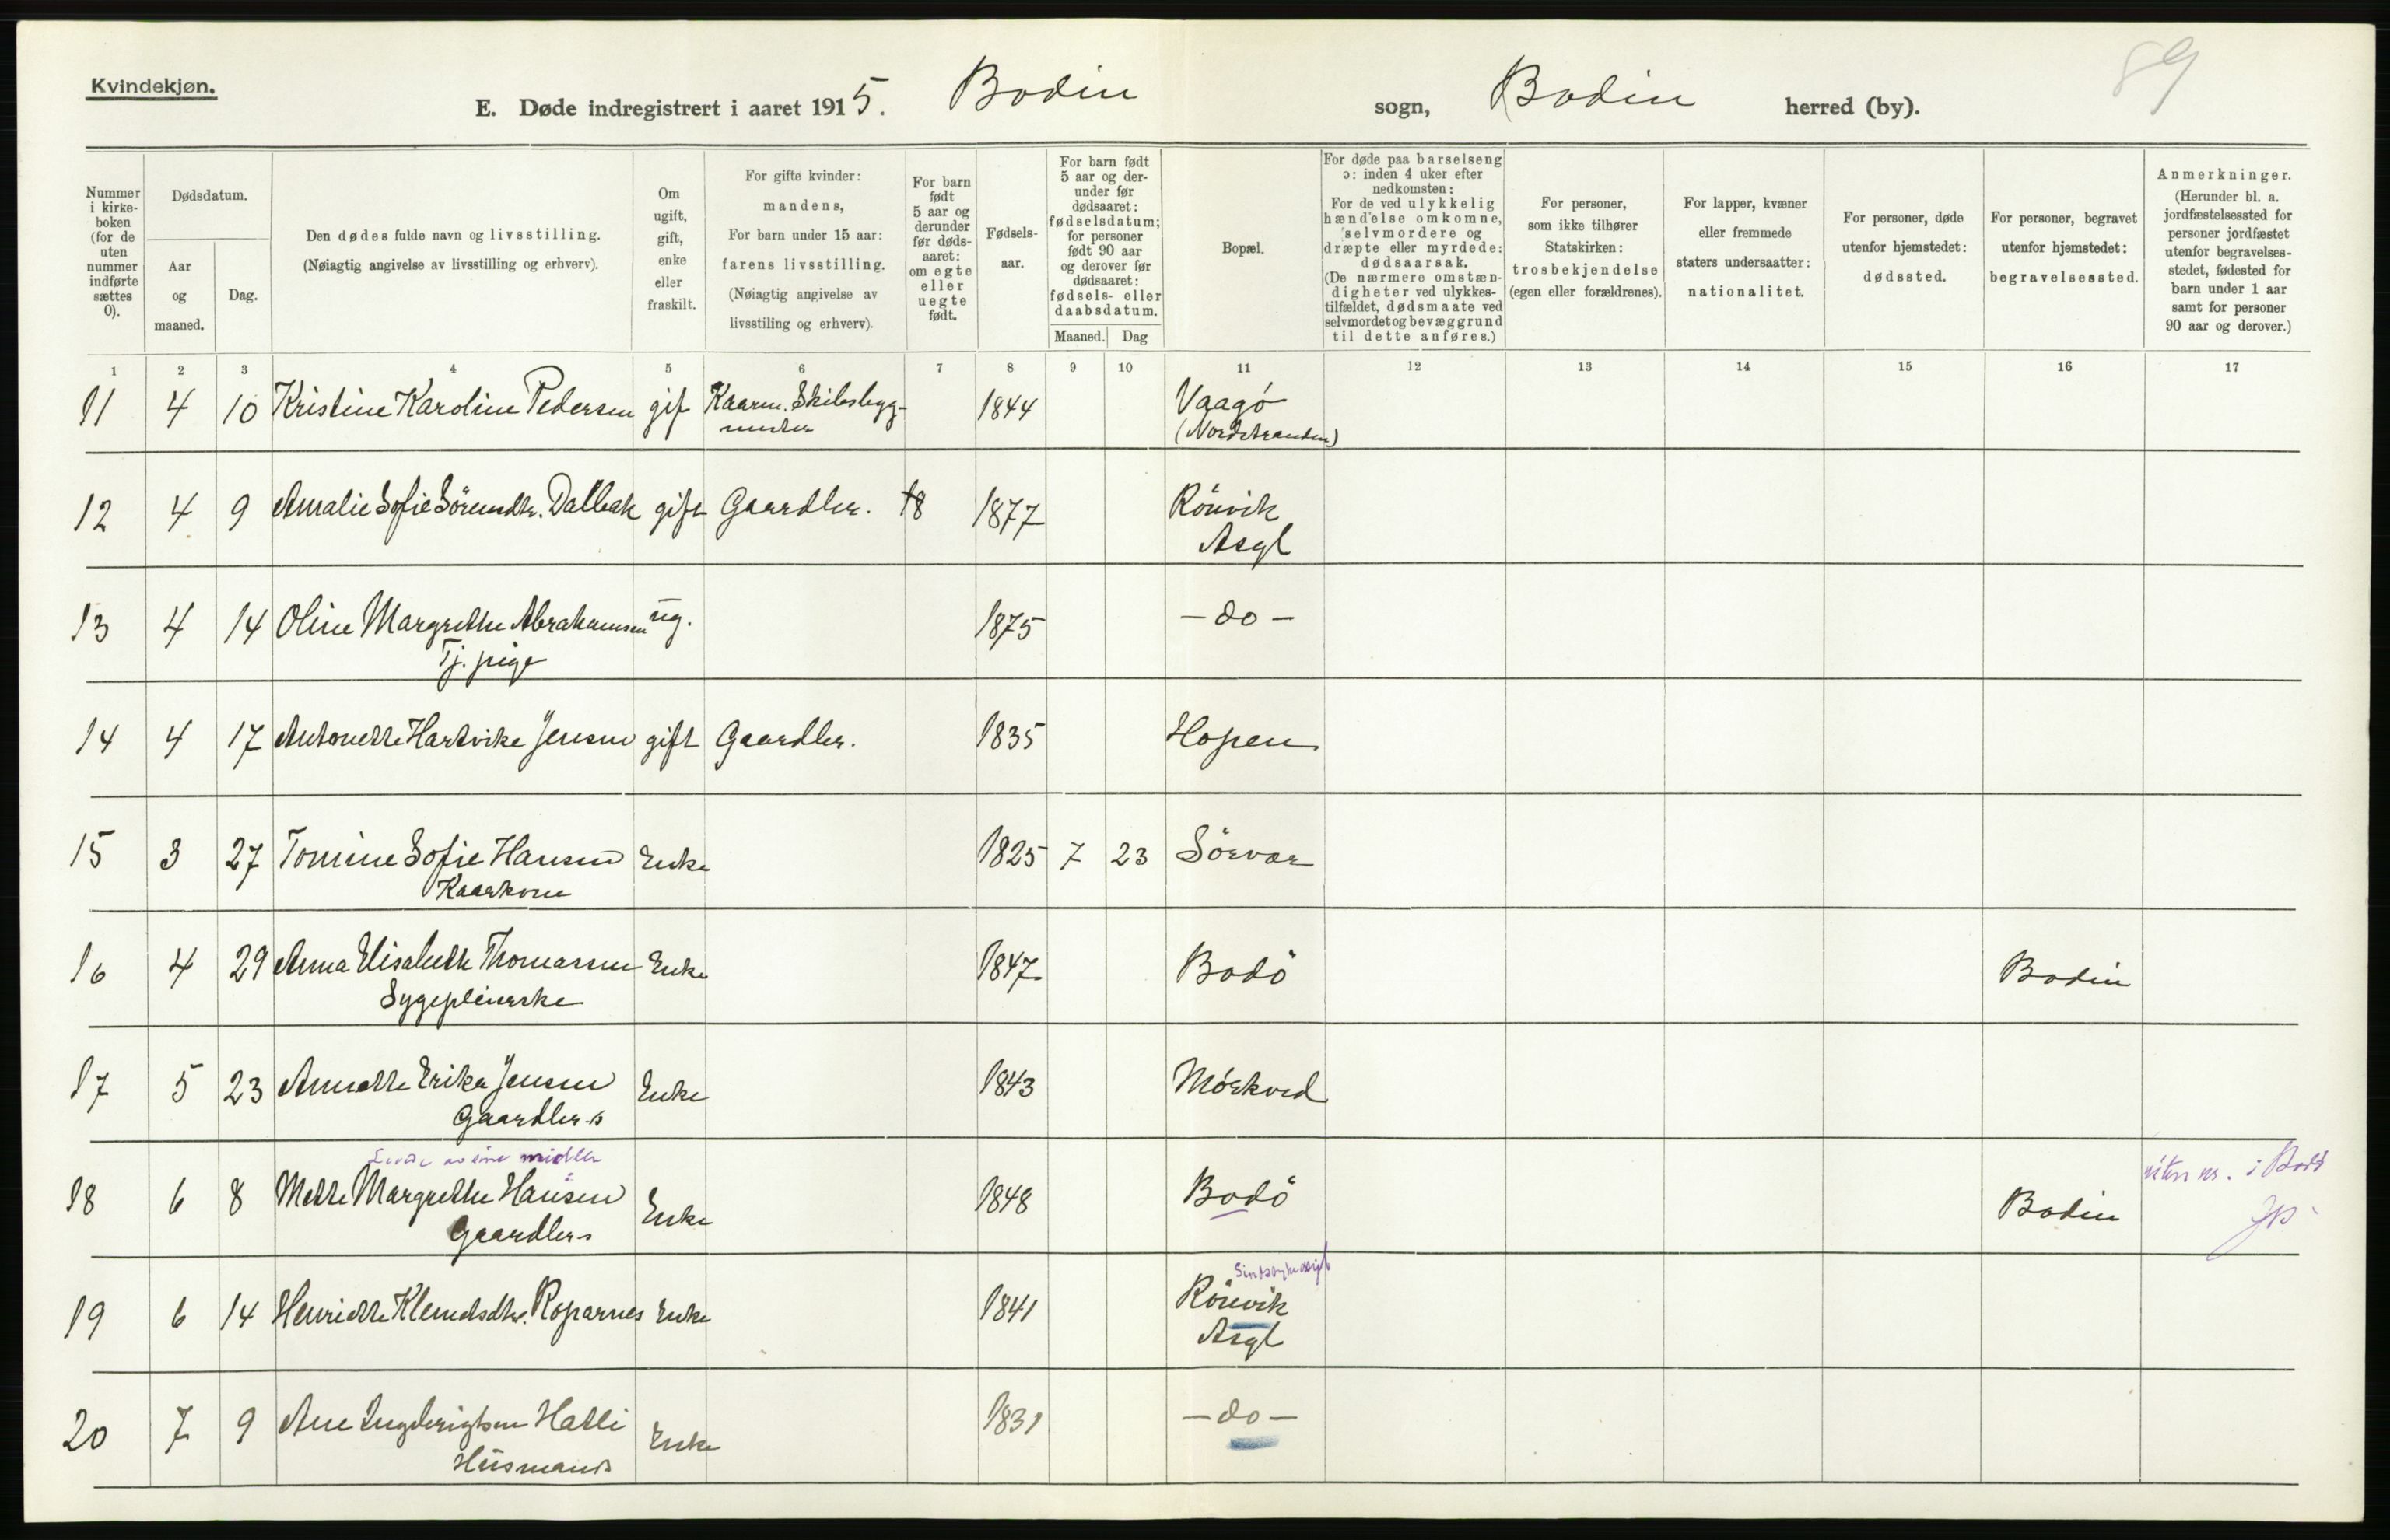 89
Kvindekjøn.
E. Døde indregistrert i aaret 1915. Bodin sogn, Bodin herred (by).
Nummer i kirke-boken (for de uten nummer indførte sættes 0).
Dødsdatum.
Aar og maaned.
Dag.
Den dødes fulde navn og livsstilling.
(Nøiagtig angivelse av livsstilling og erhverv).
Om ugift, gift, enke eller fraskilt.
For gifte kvinder: mandens,
For barn under 15 aar: farens livsstilling.
(Nøiagtig angivelse av livsstiling og erhverv).
For barn født 5 aar og derunder før døds-aaret: om egte eller uegte født.
Fødsels-aar.
For barn født 5 aar og der-under før dødsaaret: fødselsdatum; for personer født 90 aar og derover før dødsaaret: fødsels- eller daabsdatum.
Maaned. Dag
Bopæl.
For døde paa barselseng ɔ: inden 4 uker efter nedkomsten:
For de ved ulykkelig hændelse omkomne, selvmordere og dræpte eller myrdede: dødsaarsak.
(De nærmere omstæn-digheter ved ulykkes-tilfældet, dødsmaate ved selvmordet og bevæggrund til dette anføres.)
For personer, som ikke tilhører Statskirken: trosbekjendelse (egen eller forældrenes).
For lapper, kvæner eller fremmede staters undersaatter: nationalitet.
For personer, døde utenfor hjemstedet: dødssted.
For personer, begravet utenfor hjemstedet: begravelsessted.
Anmerkninger.
(Herunder bl. a. jordfæstelsessted for personer jordfæstet utenfor begravelses-stedet, fødested for barn under 1 aar samt for personer 90 aar og derover.)
1 2 3 4 5 6 7 8 9 10 11 12 13 14 15 16 17
11 4 10 Kristine Karoline Pedersen gif Kaarm. Skibsbygg- 1844 Vaagö
mester (Nordstranden)
12 4 9 Amalie Sofie Sörensdtr. Dalbak gift Gaardbr. 18 1877 Rönvik
Asyl
13 4 14 Oline Margrethe Abrahamsen ug. 1875 - do -
Tj. pige
14 4 17 Antonette Hartvike Jensen gift Gaardbr. 1835 Hopen
15 3 27 Tomine Sofie Hansen Enke 1825 7 23 Sörvær
Kaarkone
16 4 29 Anna Elisabeth Thomassen Enke 1847 Bodö Bodin
Sygepleierske
17 5 23 Annette Erika Jensen Enke 1843 Mörkved
Gaardbr.s
Levde av sine midler
18 6 8 Mette Margrethe Hansen Enke 1848 Bodö Bodin uten nr. i Bodö
Gaardbrs
Sindssykeasyl
19 6 14 Henriette Klemetsdtr. Roparnes Enke 1841 Rönvik
Asyl
20 7 9 Ane Ingebrigtsen Hatli Enke 1831 - do -
Husmands